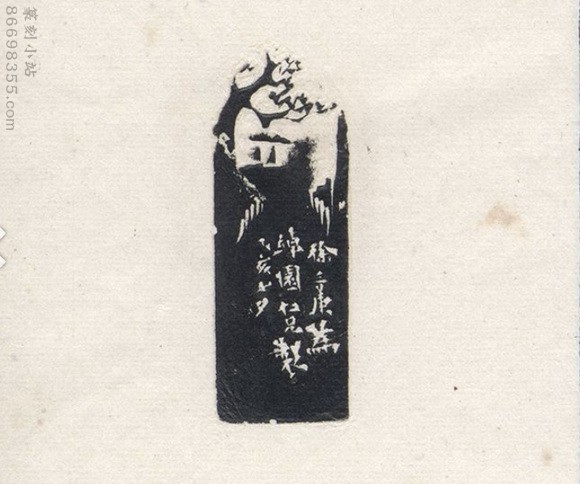 徐三庚為
竫園仁兄製
乙亥七夕
篆刻小站
86698355.com